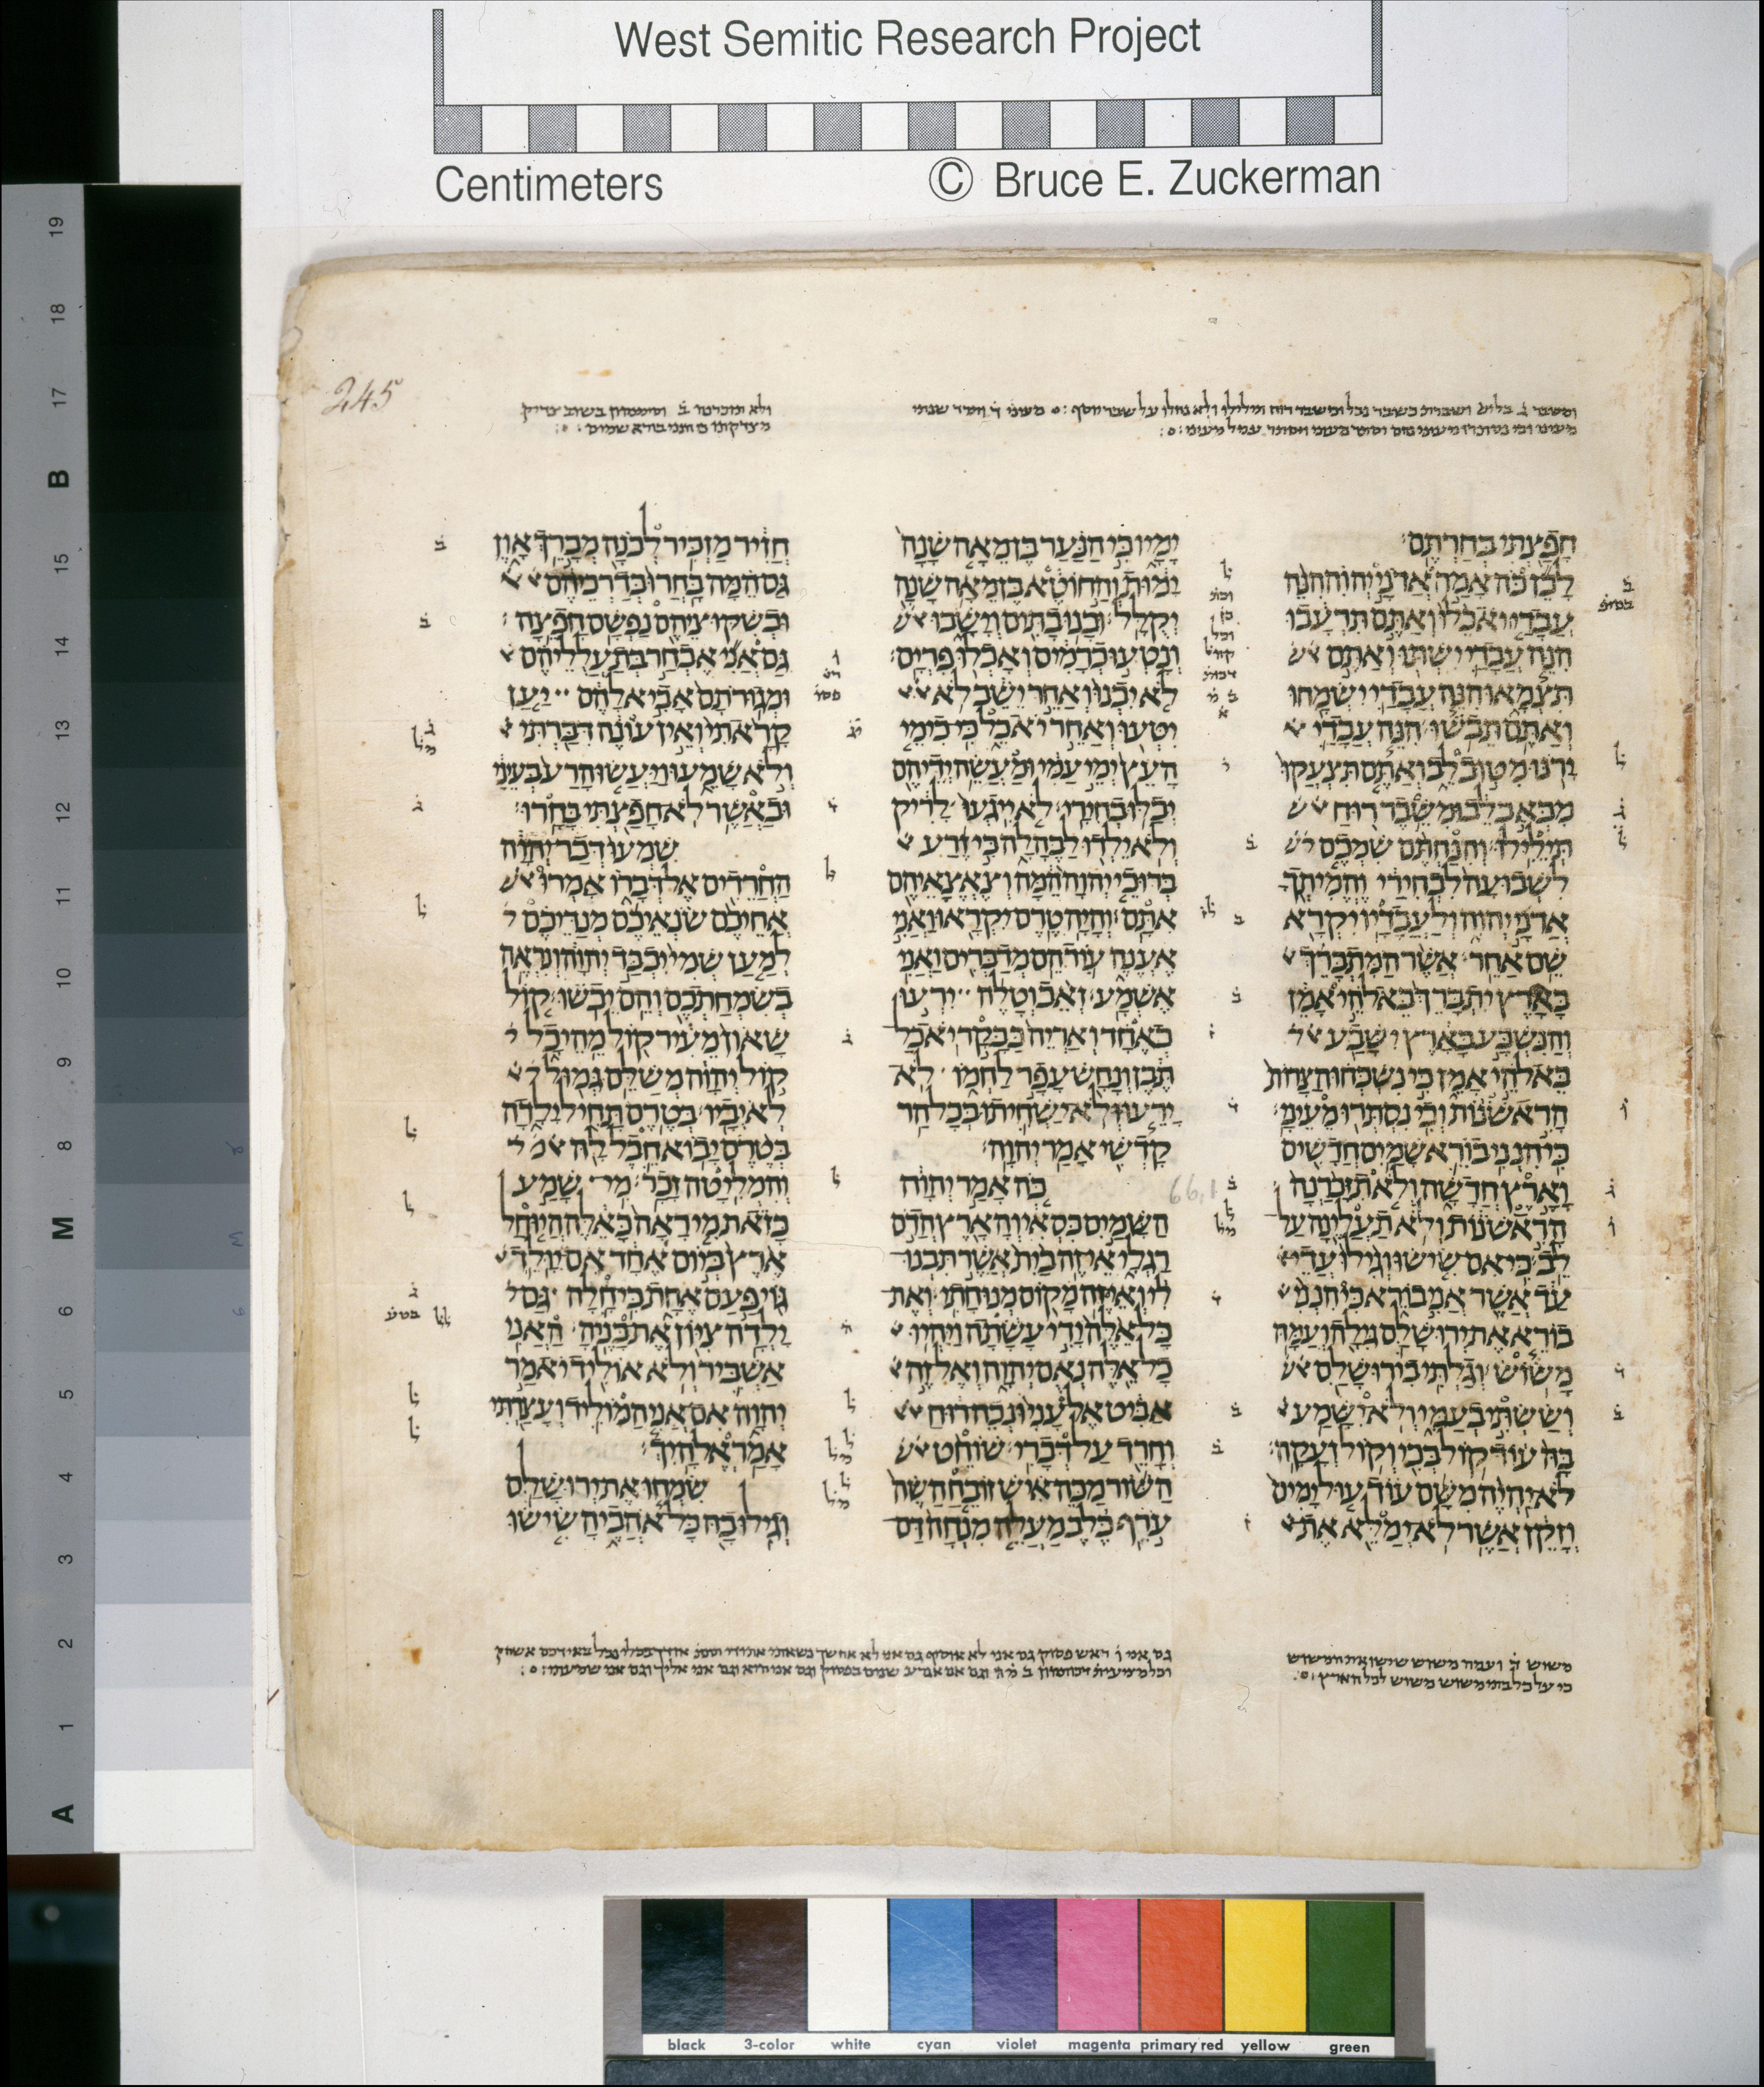 West Semitic Research Project
Centimeters © Bruce E. Zuckerman
245
חפצתי בחרתם
לכן כה אמר אדני יהוה הנה
עבדי יאכלו ואתם תרעבו
הנה עבדי ישתו ואתם
תצמאו הנה עבדי ישמחו
ואתם תבשו הנה עבדי
ירנו מטוב לב ואתם תצעקו
מכאב לב ומשבר רוח
תילילו והנחתם שמכם
לשבועה לבחירי והמיתך
אדני יהוה ולעבדיו יקרא
שם אחר אשר המתברך
בארץ יתברך באלהי אמן
והנשבע בארץ ישבע
באלהי אמן כי נשכחו הצרות
הראשנות וכי נסתרו מעיני
כי הנני בורא שמים חדשים
וארץ חדשה ולא תזכרנה
הראשנות ולא תעלינה על
לב כי אם שישו וגילו עדי
עד אשר אני בורא כי הנני
בורא את ירושלם גילה ועמה
משוש וגלתי בירושלם
וששתי בעמי ולא ישמע
בה עוד קול בכי וקול זעקה
לא יהיה משם עוד עול ימים
וזקן אשר לא ימלא את
ימיו כי הנער בן מאה שנה
ימות והחוטא בן מאה שנה
יקלל ובנו בתים וישבו
ונטעו כרמים ואכלו פרים
לא יבנו ואחר ישב לא
יטעו ואחר יאכל כי כימי
העץ ימי עמי ומעשה ידיהם
יבלו בחירי לא ייגעו לריק
ולא ילדו לבהלה כי זרע
ברוכי יהוה המה וצאצאיהם
אתם והיה טרם יקראו ואני
אענה עוד הם מדברים ואני
אשמע זאב וטלה ירעו
כאחד ואריה כבקר יאכל
תבן ונחש עפר לחמו לא
ירעו ולא ישחיתו בכל הר
קדשי אמר יהוה
כה אמר יהוה
66,1
השמים כסאי והארץ הדם
רגלי אי זה בית אשר תבנו
לי ואי זה מקום מנוחתי ואת
כל אלה ידי עשתה ויהיו
כל אלה נאם יהוה ואל זה
אביט אל עני ונכה רוח
וחרד על דברי שוחט
השור מכה איש זובח השה
ערף כלב מעלה מנחה דם
חזיר מזכיר לבנה מברך און
גם המה בחרו בדרכיהם
ובשקוציהם נפשם חפצה
גם אני אבחר בתעלליהם
ומגורתם אביא להם יען
קראתי ואין עונה דברתי
ולא שמעו ויעשו הרע בעיני
ובאשר לא חפצתי בחרו
שמעו דבר יהוה
החרדים אל דברו אמרו
אחיכם שנאיכם מנדיכם
למען שמי יכבד יהוה ונראה
בשמחתכם והם יבשו קול
שאון מעיר קול מהיכל
קול יהוה משלם גמול
לאיביו בטרם תחיל ילדה
בטרם יבוא חבל לה
והמליטה זכר מי שמע
כזאת מי ראה כאלה היוחל
ארץ ביום אחד אם יולד
גוי פעם אחת כי חלה גם
ילדה ציון את בניה האני
אשביר ולא אוליד יאמר
יהוה אם אני המוליד ועצרתי
אמר אלהיך
שמחו את ירושלם
וגילו בה כל אהביה שישו
A 1 2 3 4 5 6 M 8 9 10 11 12 13 14 15 B 17 18 19
black 3-color white cyan violet magenta primary red yellow green